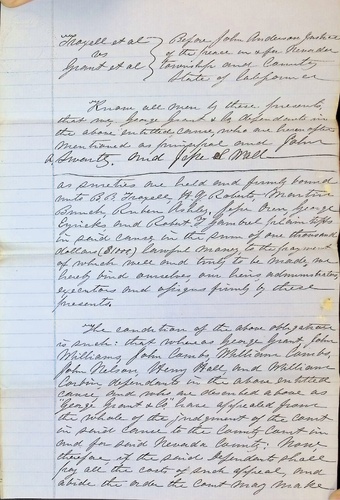 Troxell et al } Before John Anderson Justice
vs } of the Peace in & for Nevada
Grant et al } Township and County
State of California
Know all men by these presents
that we George Grant & Co defendants in
the above entitled cause, who are hereinafter
mentioned as principal and John
Swartz. and Jake Wall
as sureties are held and firmly bound
unto B. R. Troxell, W. Y. Roberts, Martin
Ruben Ashley, Jofse Oren, George
and Robert Gambrel plaintiffs
in said cause, in the sum of one thousand
dollars ($1000) lawful money, to the payment
of which well and truly to be made, we
hereby bind ourselves our heirs, administrators
executors and assigns firmly by these
presents.
The condition of the above obligation
is such: that whereas George Grant, John
Williams, John Combs, William Combs,
John Nelson, Henry Hall, and William
Corbin defendants in the above entitled
cause, and who are described above as
"George Grant & Co" have appealed from
the whole of the judgment of the Court
in said cause to the County Court in
and for said Nevada County: Now
therefore if the said defendants shall
pay all the costs of such appeal, and
abide the order the Court may make